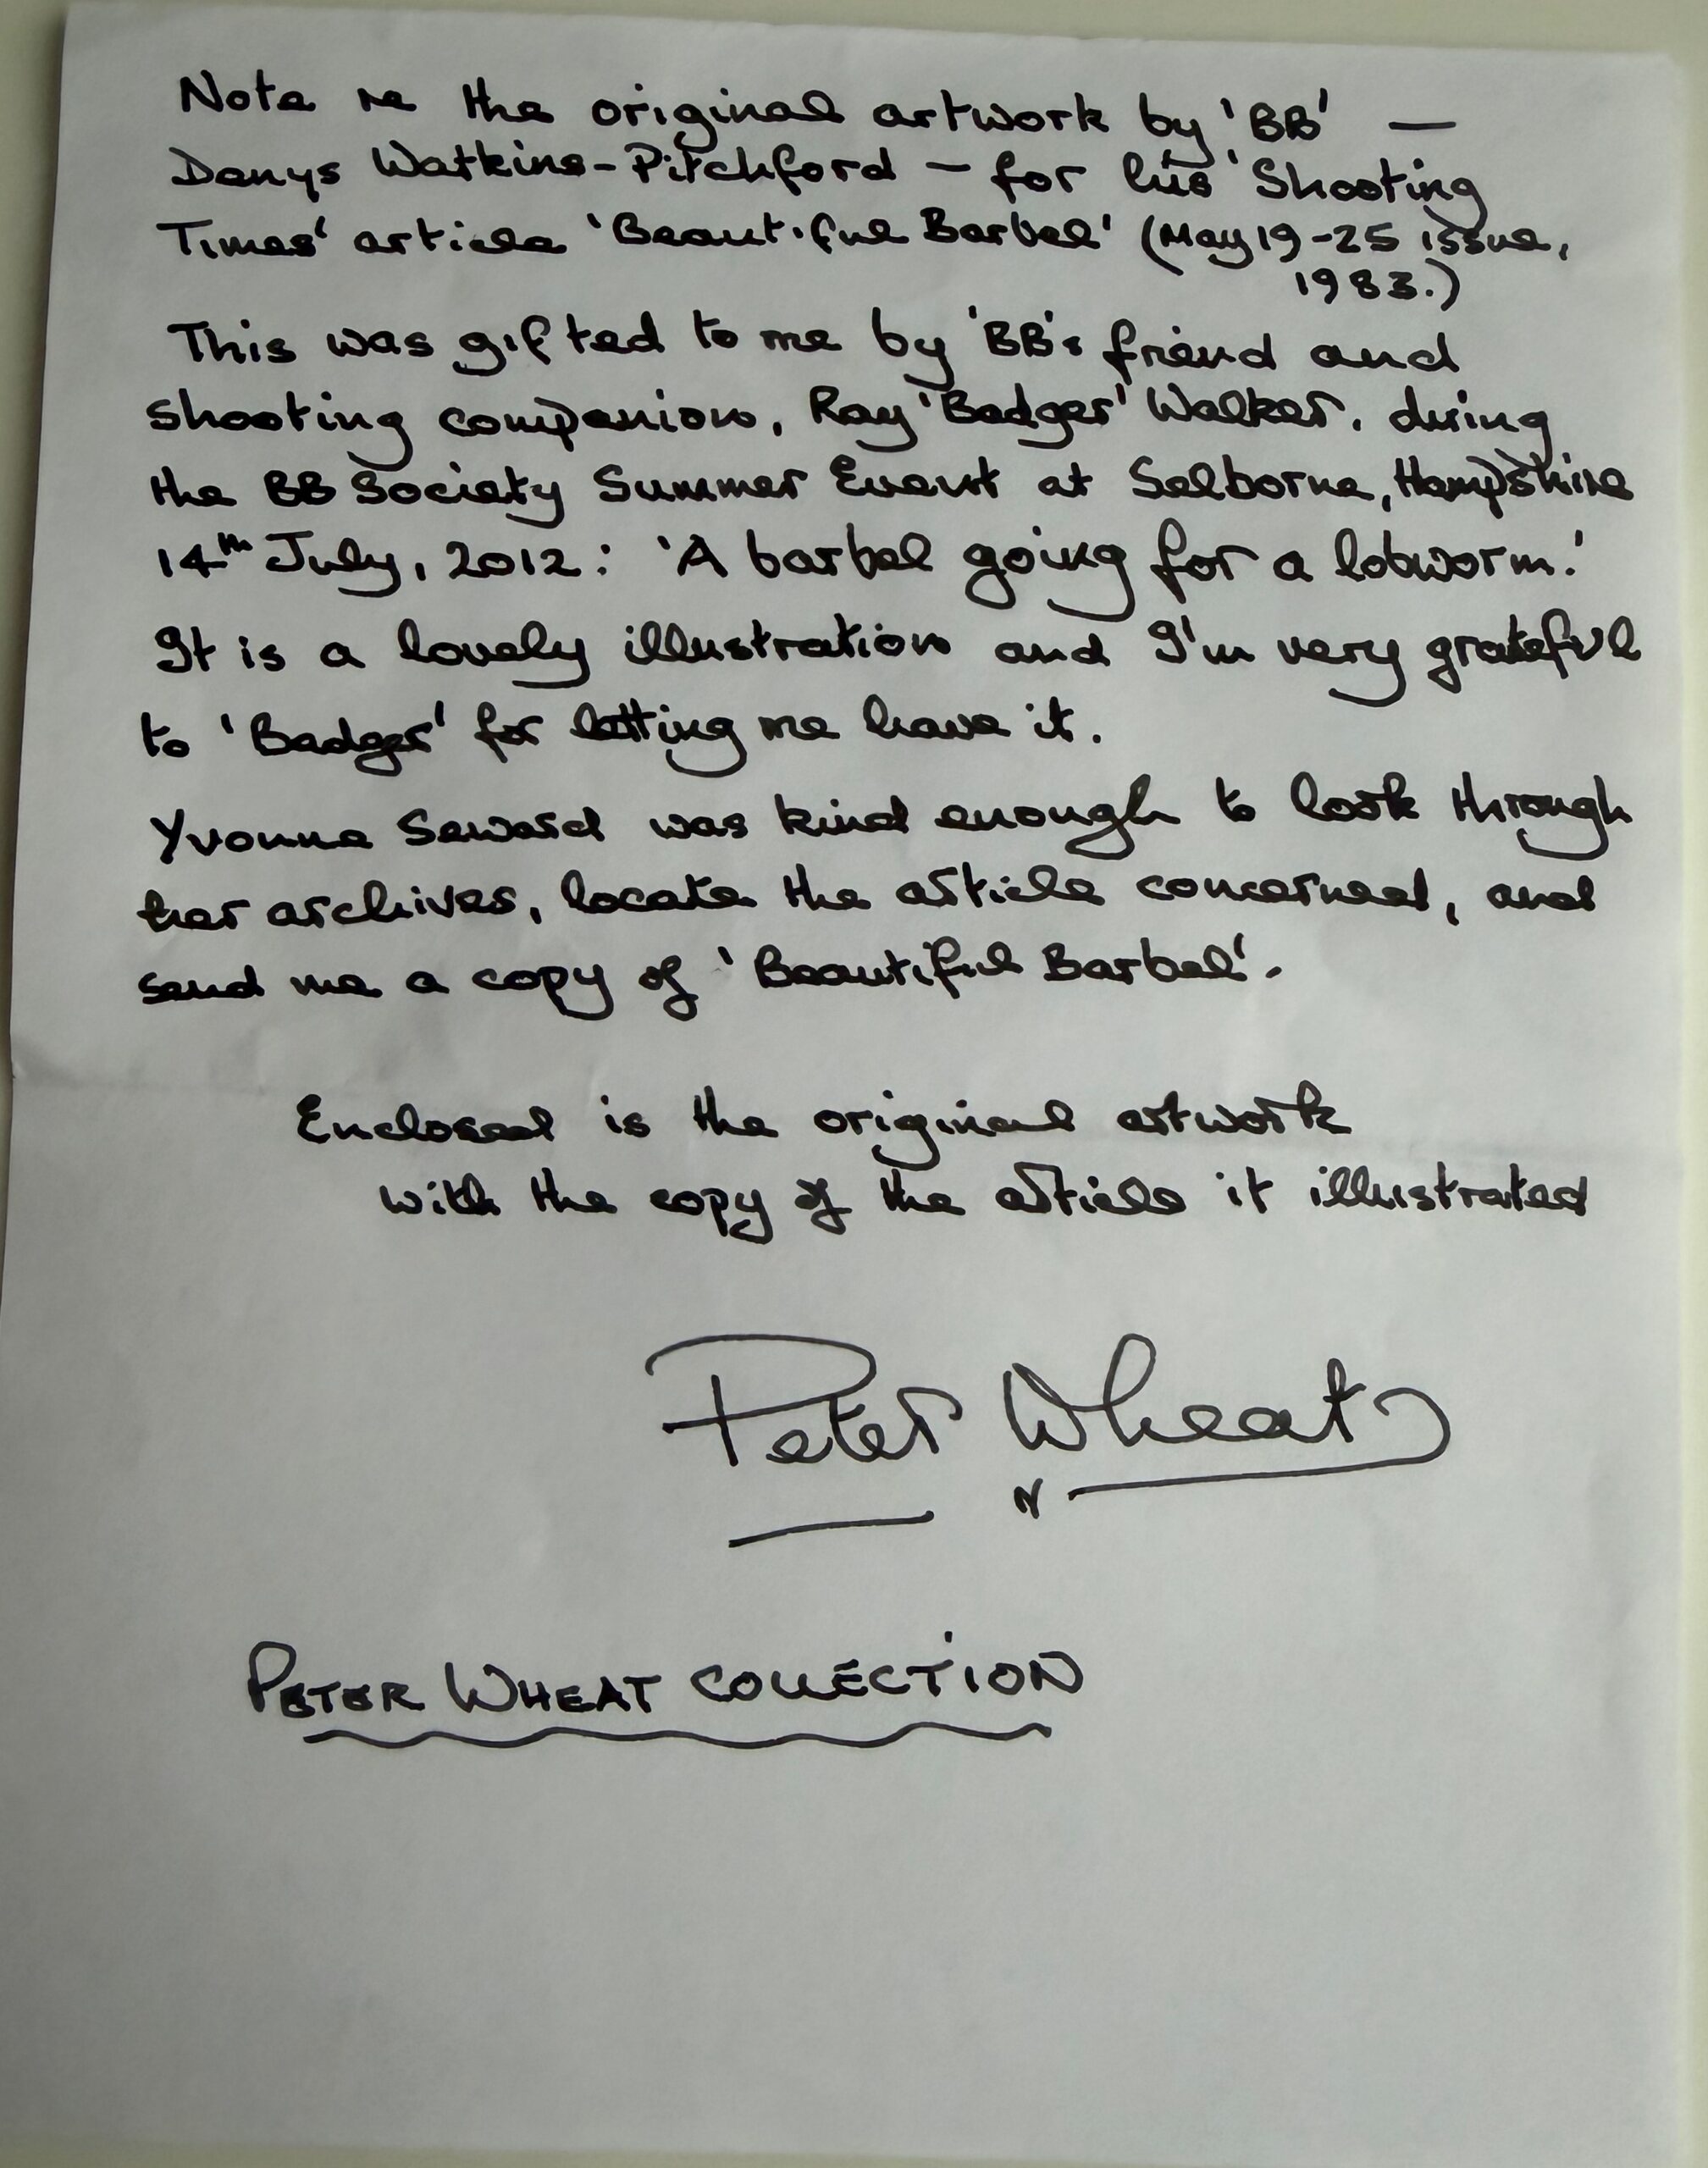 Note re the original artwork by 'BB' —
Denys Watkins-Pitchford — for his 'Shooting
Times' article 'Beautiful Barbel' (May 19-25 issue,
1983.)
This was gifted to me by 'BB's friend and
shooting companion, Ray 'Badger' Walker, during
the BB Society Summer Event at Selborne, Hampshire
14th July, 2012: 'A barbel going for a lobworm.'
It is a lovely illustration and I'm very grateful
to 'Badger' for letting me have it.
Yvonne Seward was kind enough to look through
her archives, locate the article concerned, and
send me a copy of 'Beautiful Barbel'.
Enclosed is the original artwork
with the copy of the article it illustrated
Peter Wheat
PETER WHEAT COLLECTION